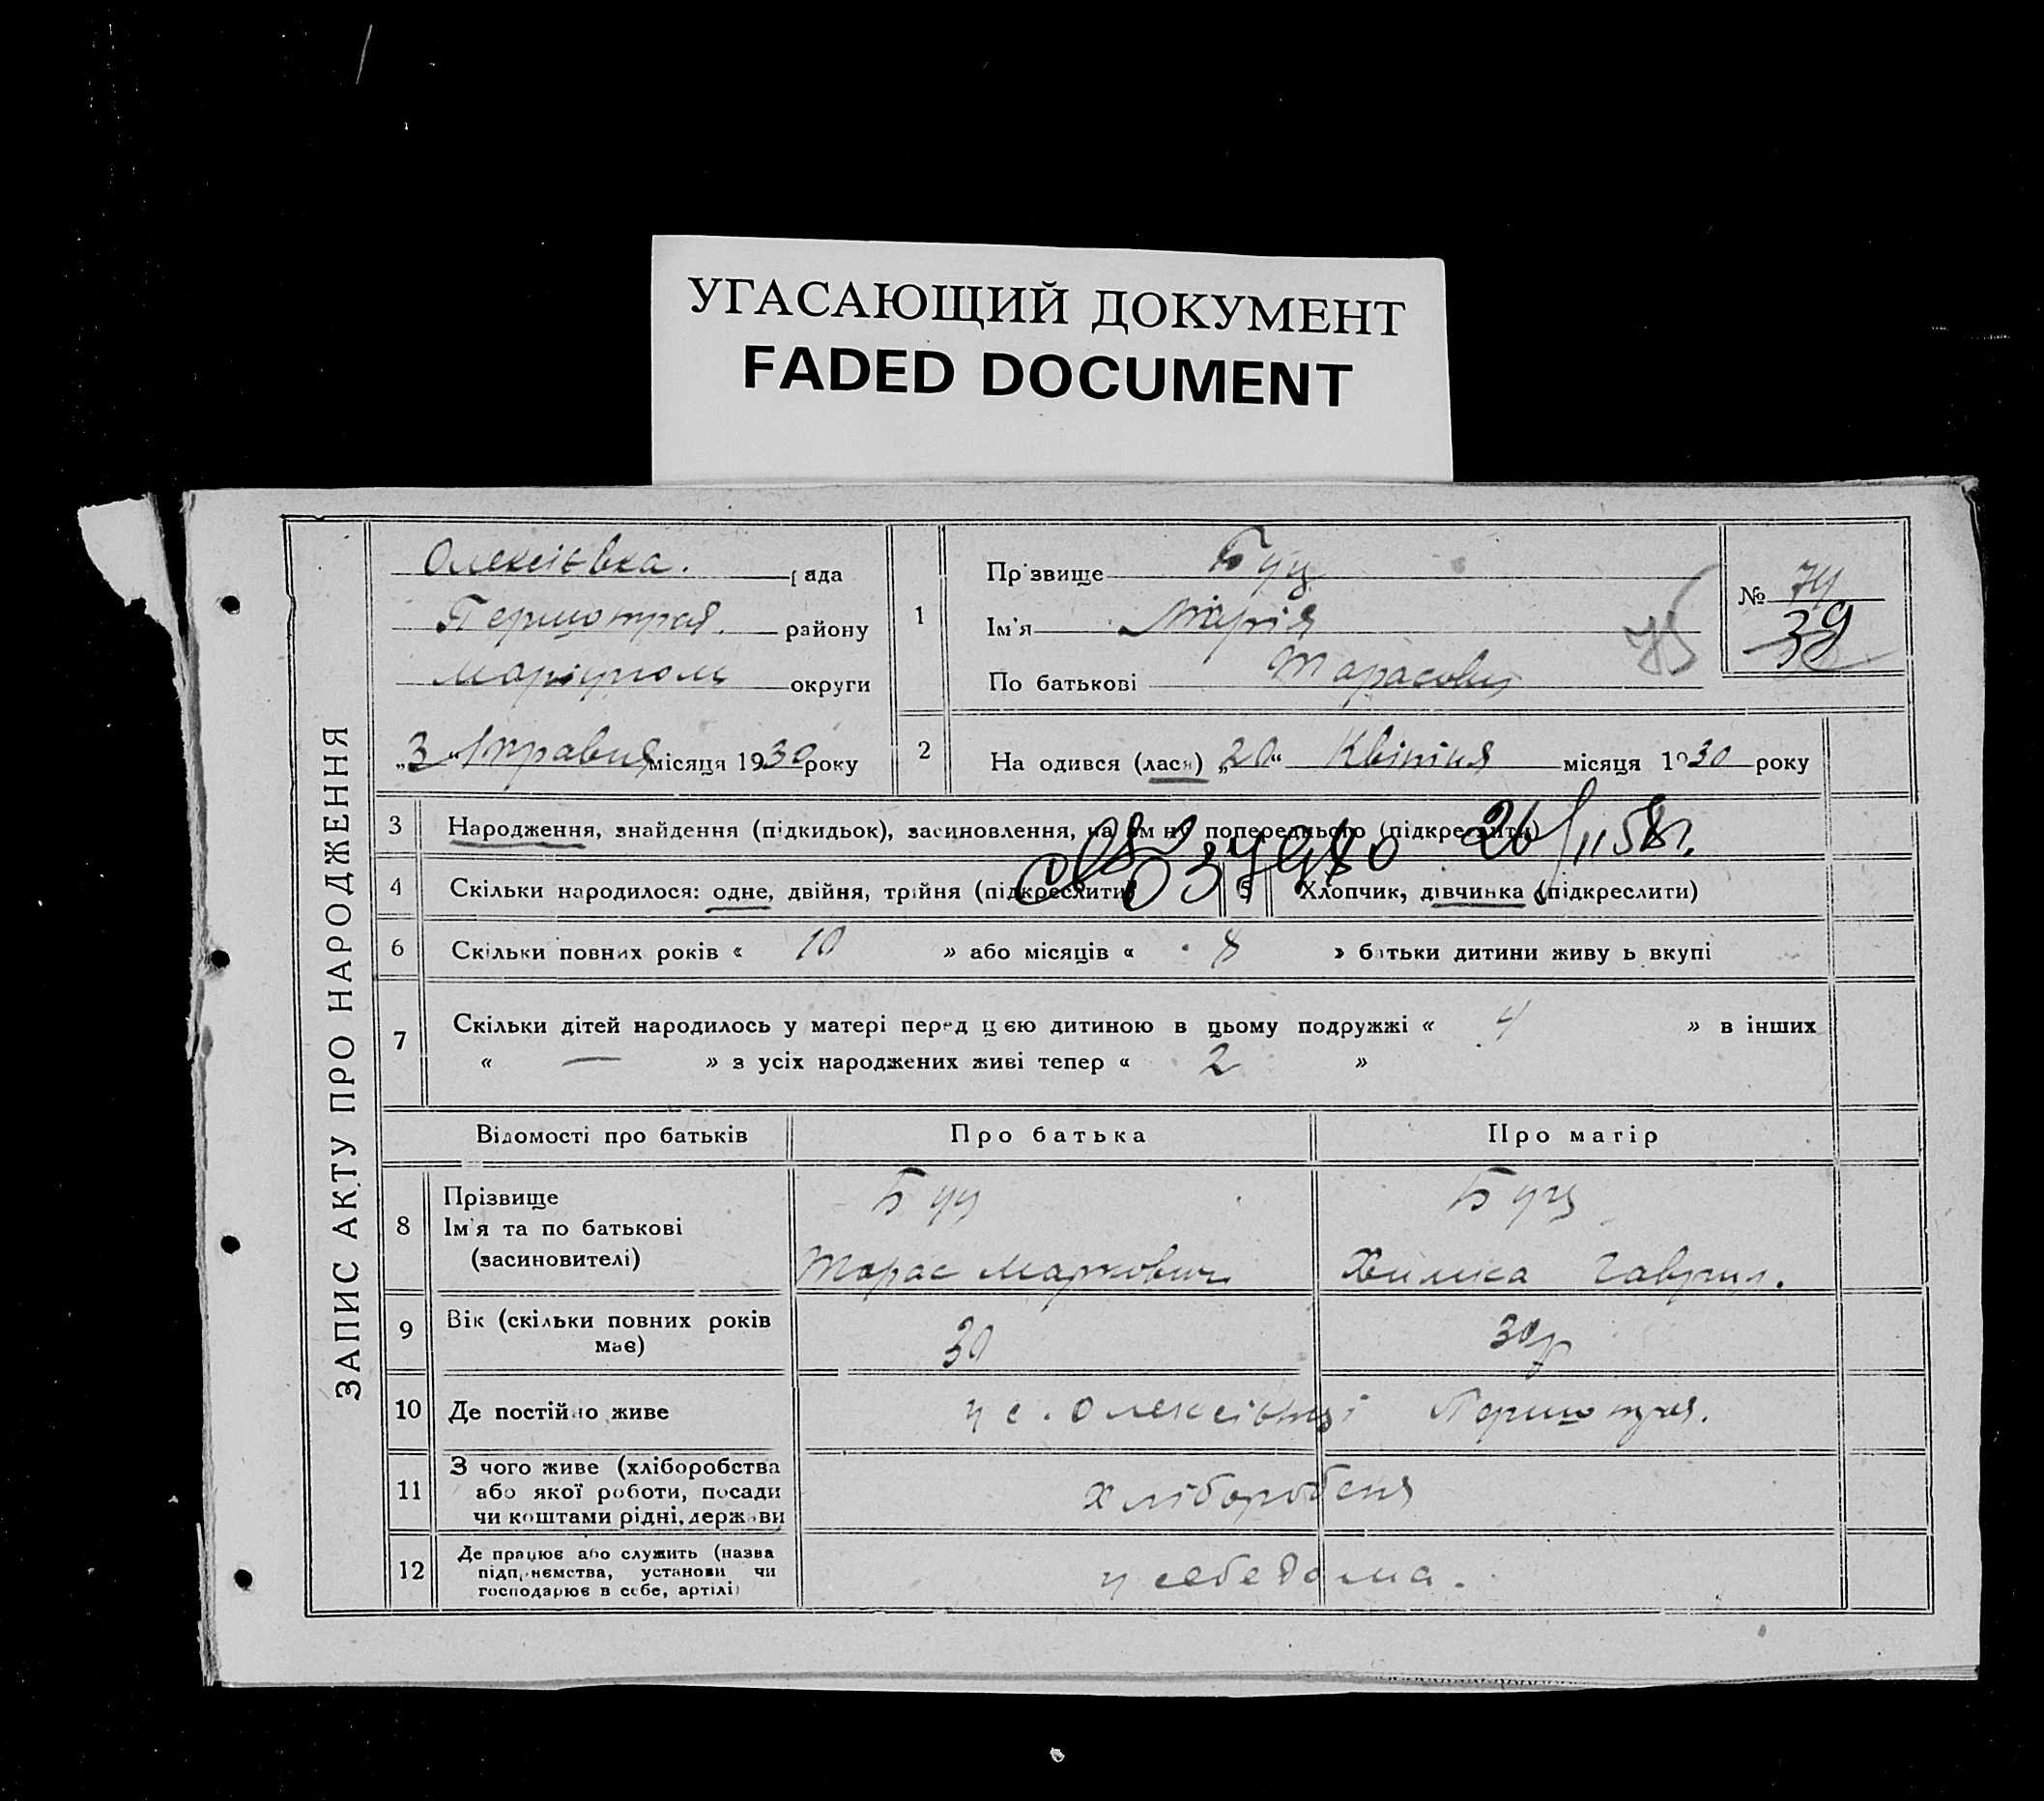 УГАСАЮЩИЙ ДОКУМЕНТ
FADED DOCUMENT
ЗАПИС АКТУ ПРО НАРОДЖЕННЯ
Олексієвка. рада
Першотрав. району
Маріупол округи
„3“ травня місяця 1930 року
1
Прізвище Буц
Ім'я Марія
По батькові Тарасовн
75
№ 74
39
2
На одився (лася) „20“ Квітня місяця 1930 року
3
Народження, знайдення (підкидьок), засиновлення, на ім ну попереднього (підкреслити)
26/II 58г.
4
Скільки народилося: одне, двійня, трійня (підкреслити)
5
Хлопчик, дівчинка (підкреслити)
6
Скільки повних років « 10 » або місяців « 8 » батьки дитини живу ь вкупі
7
Скільки дітей народилось у матері перед цією дитиною в цьому подружжі « 4 » в інших
« — » з усіх народжених живі тепер « 2 »
Відомості про батьків
Про батька
Про матір
8
Прізвище
Ім'я та по батькові
(засиновителі)
Буц
Тарас Маркович
Буц
Гаврил.
9
Вік (скільки повних років
має)
30
30р
10
Де постійно живе
у с. Олексієвці Першотрав.
11
З чого живе (хліборобства
або якої роботи, посади
чи коштами рідні, держави
хліборобств
12
Де працює або служить (назва
підприємства, установи чи
господарює в себе, артілі)
у себе дома.